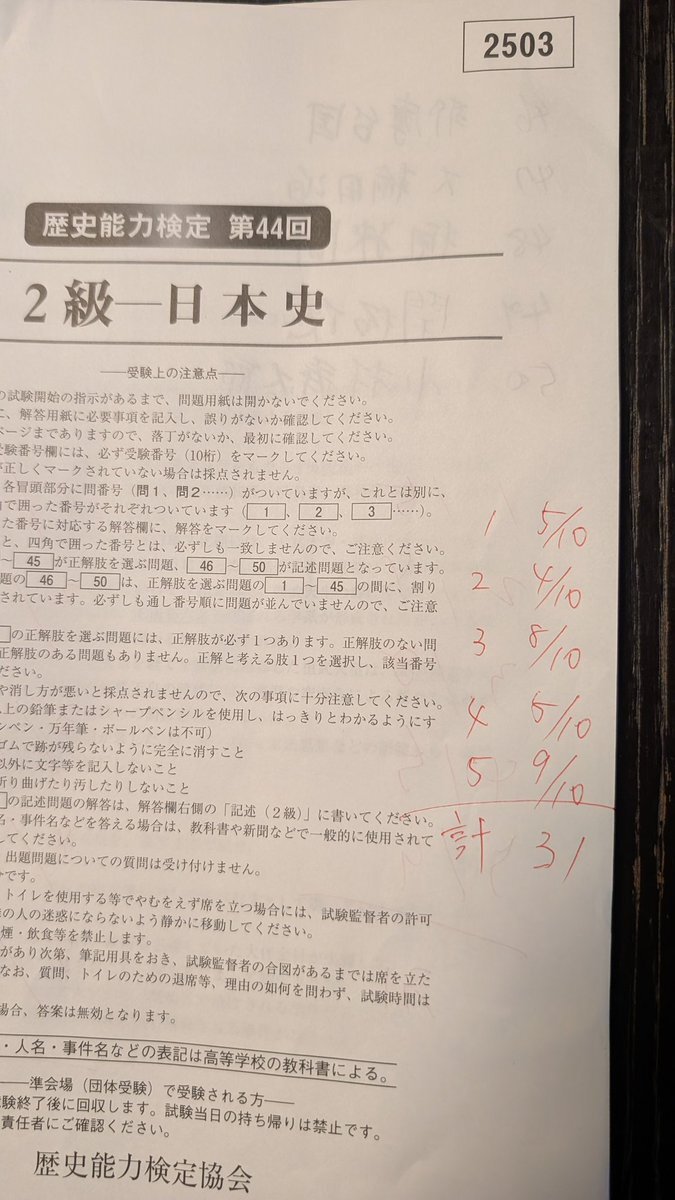 2503
歴史能力検定 第44回
2級―日本史
――受験上の注意点――
の試験開始の指示があるまで、問題用紙は開かないでください。
に、解答用紙に必要事項を記入し、誤りがないか確認してください。
ページまでありますので、落丁がないか、最初に確認してください。
受験番号欄には、必ず受験番号（10桁）をマークしてください。
が正しくマークされていない場合は採点されません。
各冒頭部分に問番号（問1、問2……）がついていますが、これとは別に、
角で囲った番号がそれぞれついています（1、2、3……）。
た番号に対応する解答欄に、解答をマークしてください。
と、四角で囲った番号とは、必ずしも一致しませんので、ご注意ください。
～45が正解肢を選ぶ問題、46～50が記述問題となっています。
題の46～50は、正解肢を選ぶ問題の1～45の間に、割り
されています。必ずしも通し番号順に問題が並んでいませんので、ご注意
の正解肢を選ぶ問題には、正解肢が必ず1つあります。正解肢のない問
正解肢のある問題もありません。正解と考える肢1つを選択し、該当番号
ださい。
や消し方が悪いと採点されませんので、次の事項に十分注意してください。
以上の鉛筆またはシャープペンシルを使用し、はっきりとわかるようにす
ンペン・万年筆・ボールペンは不可）
ゴムで跡が残らないように完全に消すこと
以外に文字等を記入しないこと
折り曲げたり汚したりしないこと
の記述問題の解答は、解答欄右側の「記述（2級）」に書いてください。
名・事件名などを答える場合は、教科書や新聞などで一般的に使用されて
してください。
出題問題についての質問は受け付けません。
分です。
トイレを使用する等でやむをえず席を立つ場合には、試験監督者の許可
の人の迷惑にならないよう静かに移動してください。
煙・飲食等を禁止します。
があり次第、筆記用具をおき、試験監督者の合図があるまでは席を立た
なお、質問、トイレのための退席等、理由の如何を問わず、試験時間は
場合、答案は無効となります。
・人名・事件名などの表記は高等学校の教科書による。
――準会場（団体受験）で受験される方――
験終了後に回収します。試験当日の持ち帰りは禁止です。
責任者にご確認ください。
歴史能力検定協会
1 5/10
2 4/10
3 8/10
4 5/10
5 9/10
計 31